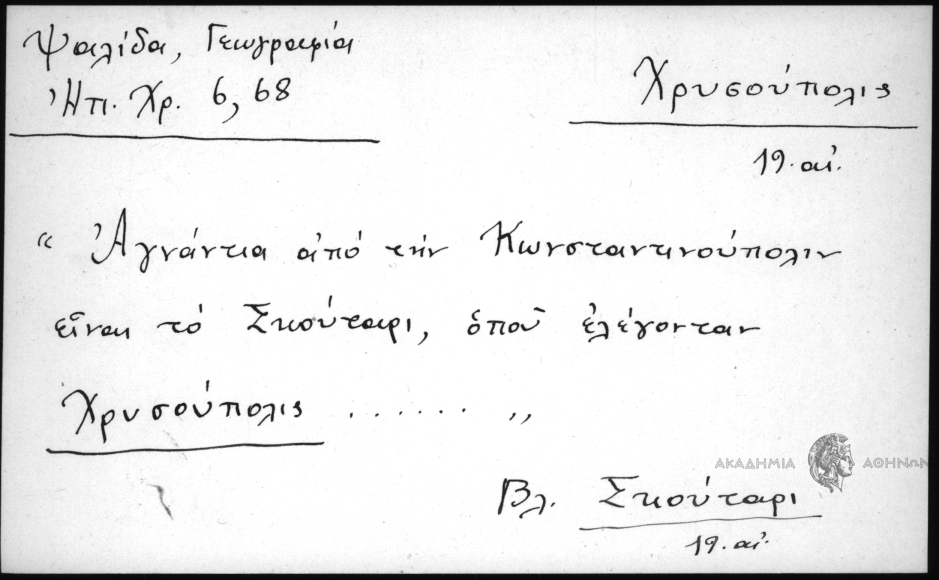 Ψαλίδα, Γεωγραφία
Ἠπ. Χρ. 6, 68
Χρυσούπολις
19. αἰ.
“ Ἀγνάντια ἀπό τήν Κωνσταντινούπολιν
εἶναι τό Σκούταρι, ὁποῦ ἐλέγονταν
Χρυσούπολις ....... ,,
ΑΚΑΔΗΜΙΑ ΑΘΗΝΩΝ
Βλ. Σκούταρι
19. αἰ.